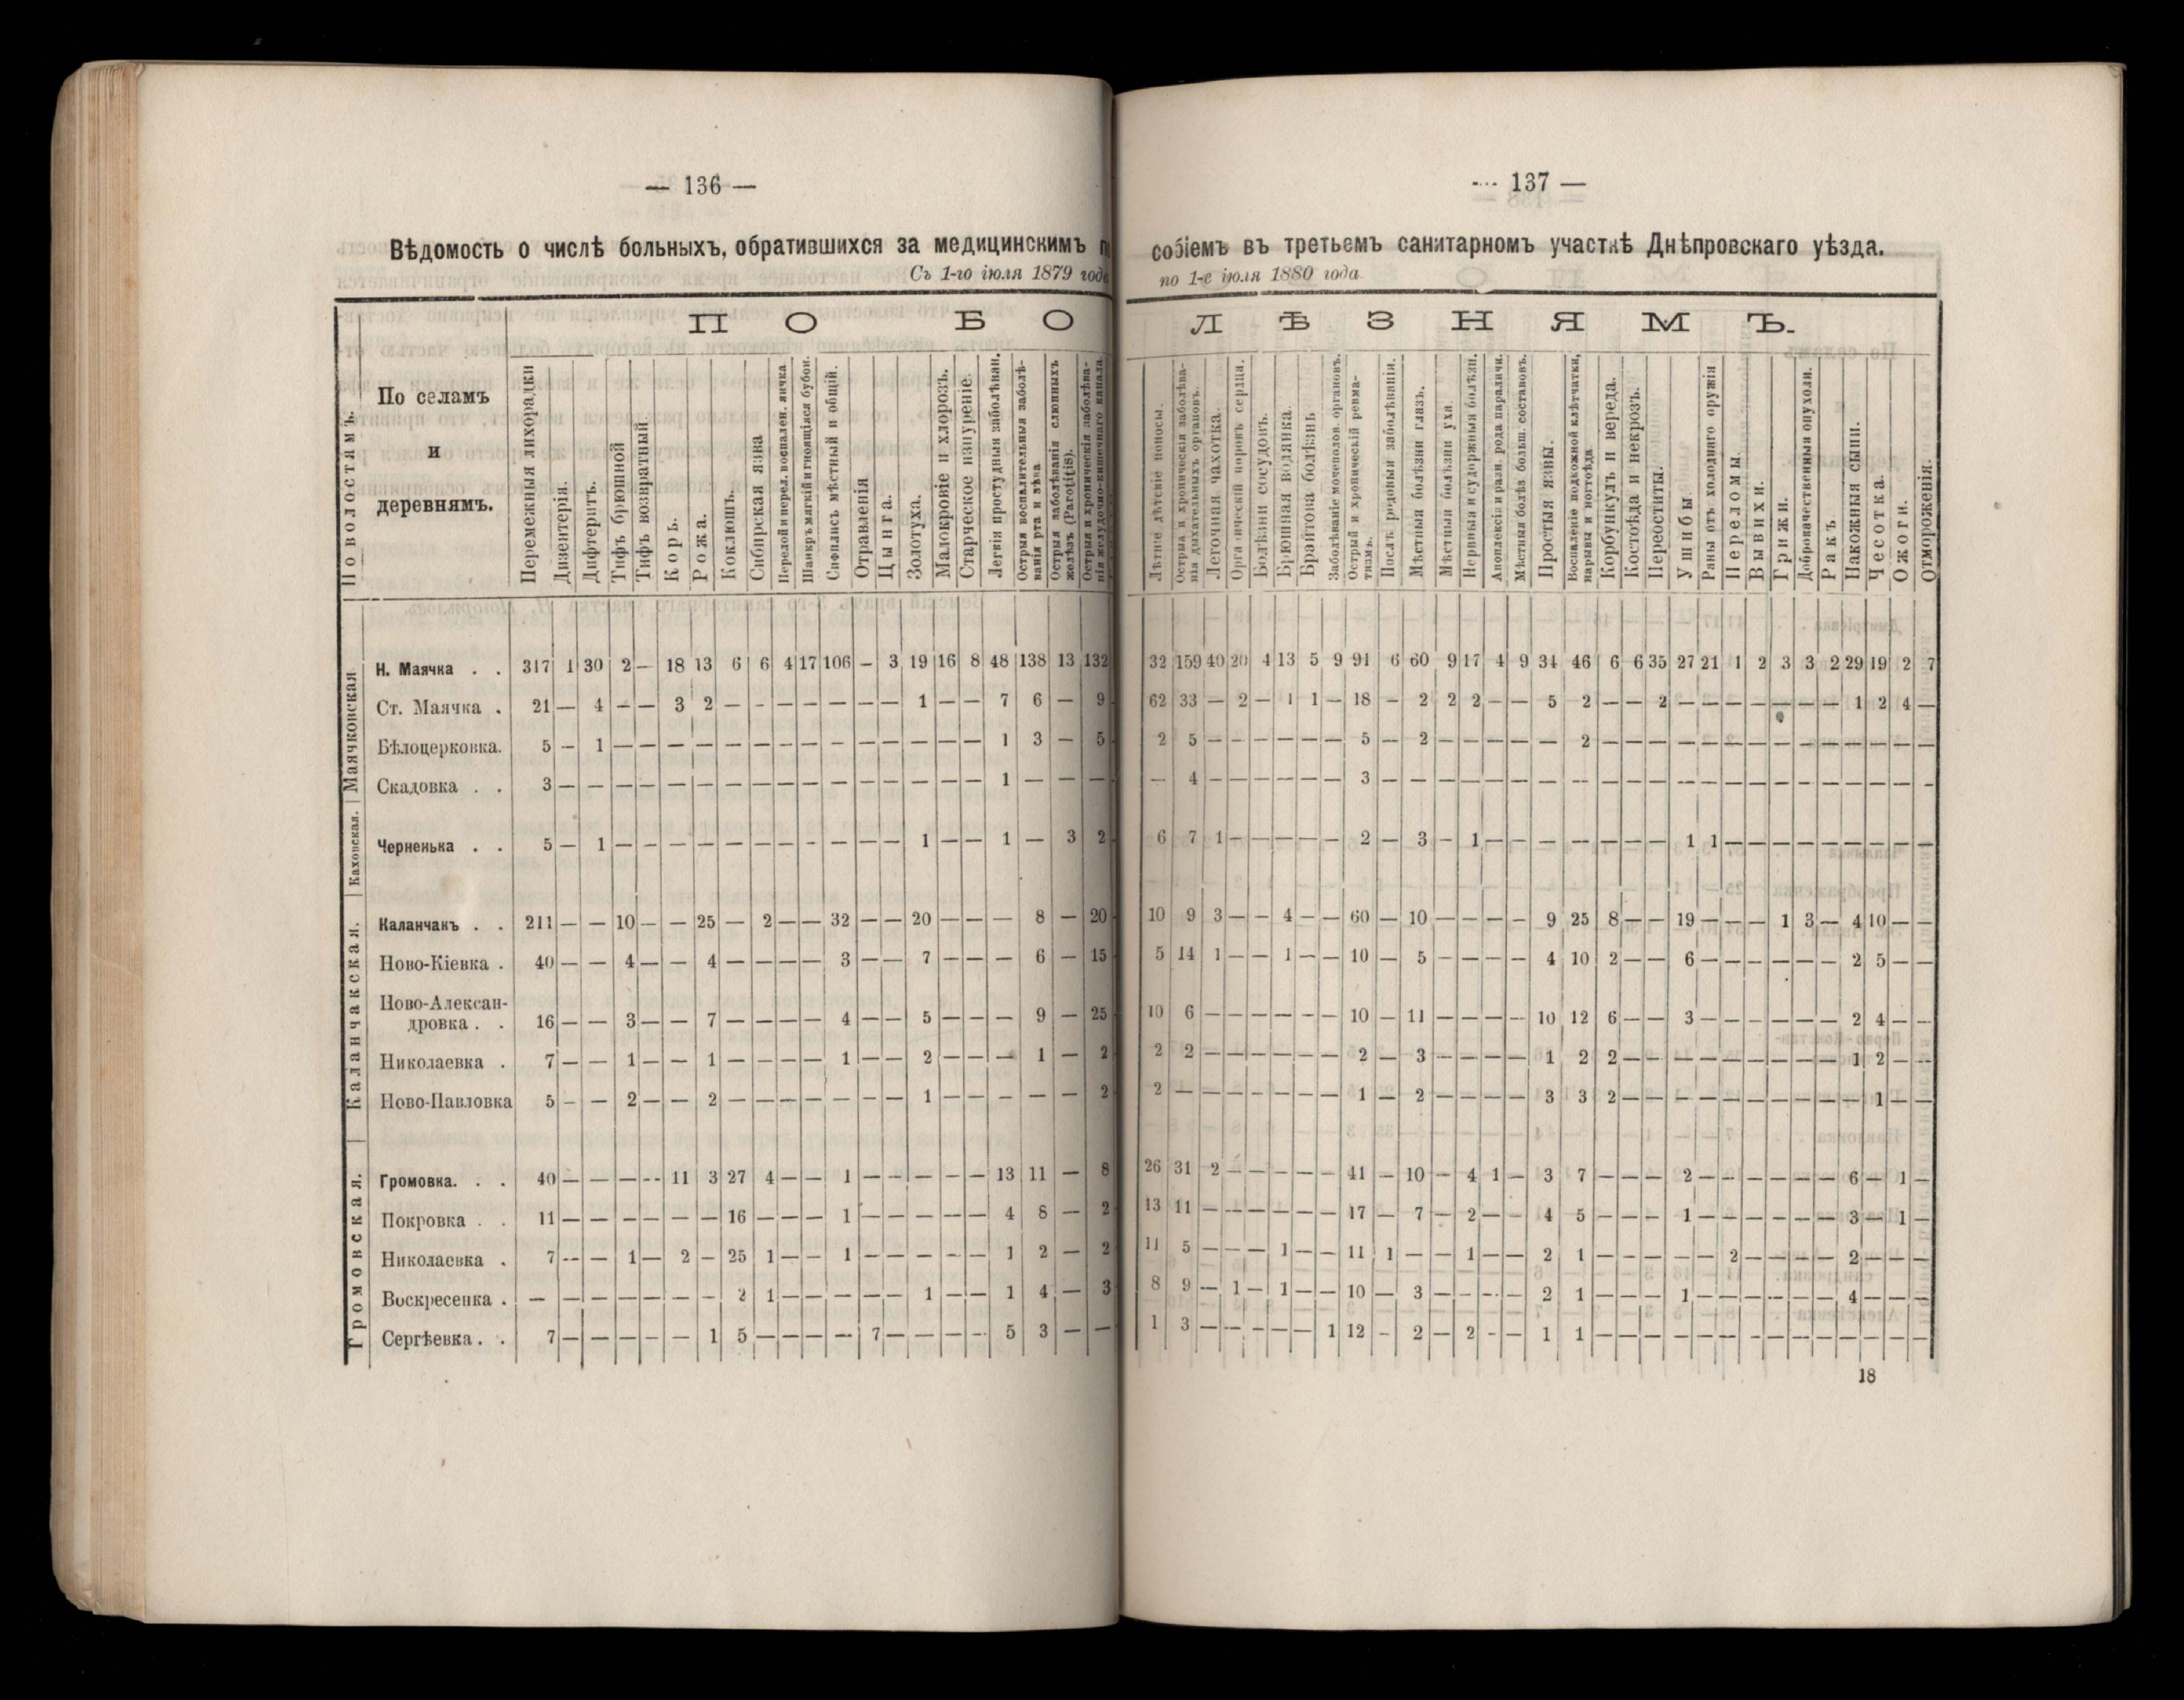 — 136 —
Вѣдомость о числѣ больныхъ, обратившихся за медицинскимъ
Съ 1-го іюля 1879 года
П О Б О
По волостямъ.
По селамъ
и
деревнямъ.
Перемежныя лихорадки
Дизентерія.
Дифтеритъ.
Тифъ брюшной
Тифъ возвратный
Корь.
Рожа.
Коклюшъ.
Сибирская язва
Перелой и перел. воспален. яичка
Шанкръ мягкій и гноящіяся бубон.
Сифилисъ мѣстный и общій.
Отравленія
Цынга.
Золотуха.
Малокровіе и хлорозъ.
Старческое изнуреніе.
Легкія простудныя заболѣван.
Острыя воспалительныя заболѣ-
ванія рта и зѣва
Острыя заболѣванія слюнныхъ
железъ (Parotitis).
Острыя и хроническія заболѣва-
нія желудочно-кишечнаго канала
Маячковская
Н. Маячка . . 317 1 30 2 — 18 13 6 6 4 17 106 — 3 19 16 8 48 138 13 132
Ст. Маячка . 21 — 4 — — 3 2 — — — — — — — 1 — — 7 6 — 9
Бѣлоцерковка. 5 — 1 — — — — — — — — — — — — — — 1 3 — 5
Скадовка . . 3 — — — — — — — — — — — — — — — — 1 — — —
Каховская.
Черненька . . 5 — 1 — — — — — — — — — — — 1 — — 1 — 3 2
Каланчакская.
Каланчакъ . . 211 — — 10 — — 25 — 2 — — 32 — — 20 — — — 8 — 20
Ново-Кіевка . 40 — — 4 — — 4 — — — — 3 — — 7 — — — 6 — 15
Ново-Алексан-
дровка . . 16 — — 3 — — 7 — — — — 4 — — 5 — — — 9 — 25
Николаевка . 7 — — 1 — — 1 — — — — 1 — — 2 — — — 1 — 2
Ново-Павловка 5 — — 2 — — 2 — — — — — — — 1 — — — — — 2
Громовская.
Громовка. . . 40 — — — — 11 3 27 4 — — 1 — — — — — 13 11 — 8
Покровка . . 11 — — — — — — 16 — — — 1 — — — — — 4 8 — 2
Николаевка . 7 — — 1 — 2 — 25 1 — — 1 — — — — — 1 2 — 2
Воскресенка . — — — — — — — 2 1 — — — — — 1 — — 1 4 — 3
Сергѣевка . . 7 — — — — — 1 5 — — — — 7 — — — — 5 3 — —
--- 137 —
собіемъ въ третьемъ санитарномъ участкѣ Днѣпровскаго уѣзда.
по 1-е іюля 1880 года
Л Ѣ З Н Я М Ъ.
Лѣтніе дѣтскіе поносы.
Острыя и хроническія заболѣва-
нія дыхательныхъ органовъ.
Легочная чахотка.
Органическій порокъ сердца.
Болѣзни сосудовъ.
Брюшная водянка.
Брайтова болѣзнь
Заболѣваніе мочеполов. органовъ.
Острый и хроническій ревма-
тизмъ.
Послѣ родовыя заболѣванія.
Мѣстныя болѣзни глазъ.
Мѣстныя болѣзни уха
Нервныя и судоржныя болѣзни.
Апоплексія и разн. рода параличи.
Мѣстныя болѣз больш. составовъ.
Простыя язвы.
Воспаленіе подкожной клѣтчатки,
нарывы и ногтоѣда
Корбункулъ и вереда.
Костоѣда и некрозъ.
Переоститы.
Ушибы
Раны отъ холоднаго оружія
Переломы
Вывихи.
Грижи.
Доброкачественныя опухоли.
Ракъ
Накожныя сыпи.
Чесотка.
Ожоги.
Отмороженія.
32 159 40 20 4 13 5 9 91 6 60 9 17 4 9 34 46 6 6 35 27 21 1 2 3 3 2 29 19 2 7
62 33 — 2 — 1 1 — 18 — 2 2 2 — — 5 2 — — 2 — — — — — — — 1 2 4 —
2 5 — — — — — — 5 — 2 — — — — — 2 — — — — — — — — — — — — — —
— 4 — — — — — — 3 — — — — — — — — — — — — — — — — — — — — — —
6 7 1 — — — — — 2 — 3 — 1 — — — — — — — 1 1 — — — — — — — — —
10 9 3 — — 4 — — 60 — 10 — — — — 9 25 8 — — 19 — — — 1 3 — 4 10 — —
5 14 1 — — 1 — — 10 — 5 — — — — 4 10 2 — — 6 — — — — — — 2 5 — —
10 6 — — — — — — 10 — 11 — — — — 10 12 6 — — 3 — — — — — — 2 4 — —
2 2 — — — — — — 2 — 3 — — — — 1 2 2 — — — — — — — — — 1 2 — —
2 — — — — — — — 1 — 2 — — — — 3 3 2 — — — — — — — — — — 1 — —
26 31 2 — — — — — 41 — 10 — 4 1 — 3 7 — — — 2 — — — — — — 6 — 1 —
13 11 — — — — — — 17 — 7 — 2 — — 4 5 — — — 1 — — — — — — 3 — 1 —
11 5 — — — 1 — — 11 1 — — 1 — — 2 1 — — — — — 2 — — — — 2 — — —
8 9 — 1 — 1 — — 10 — 3 — — — — 2 1 — — — 1 — — — — — — 4 — — —
1 3 — — — — — 1 12 — 2 — 2 — — 1 1 — — — — — — — — — — — — — —
18